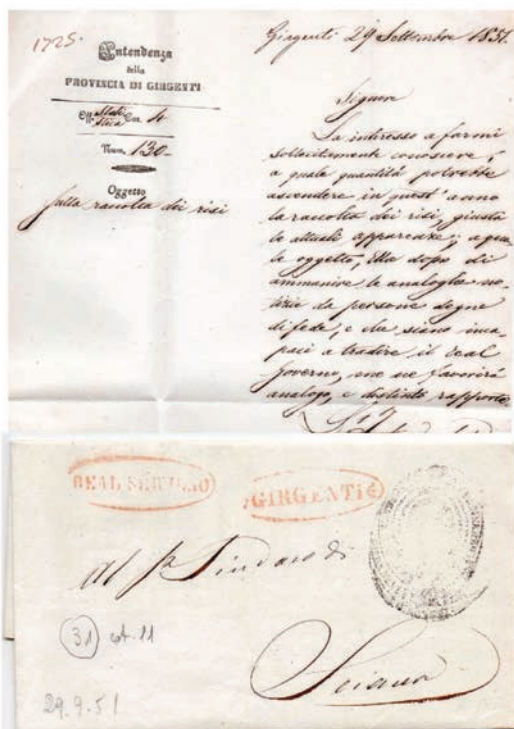 1725.
Intendenza
della
PROVINCIA DI GIRGENTI
Off. Stati
stica Car. 4
Num. 130-
Oggetto
Sulla raccolta dei risi
Girgenti 29 Settembre 1851.
Signore
La interesso a farmi
sollecitamente conoscere,
a quale quantità potrebbe
ascendere in quest'anno
la raccolta dei risi, giusta
le attuali apparenze; a qua
le oggetto, Ella dopo di
ammanire le analoghe no-
tizie da persone degne
di fede, e che siano inca
paci a tradire il Real
Governo, me ne favorirà
analogo, e distinto rapporto.
REAL SERVIZIO
GIRGENTI
Al Sindaco di
Sciacca
31 cat. 11
29.9.51